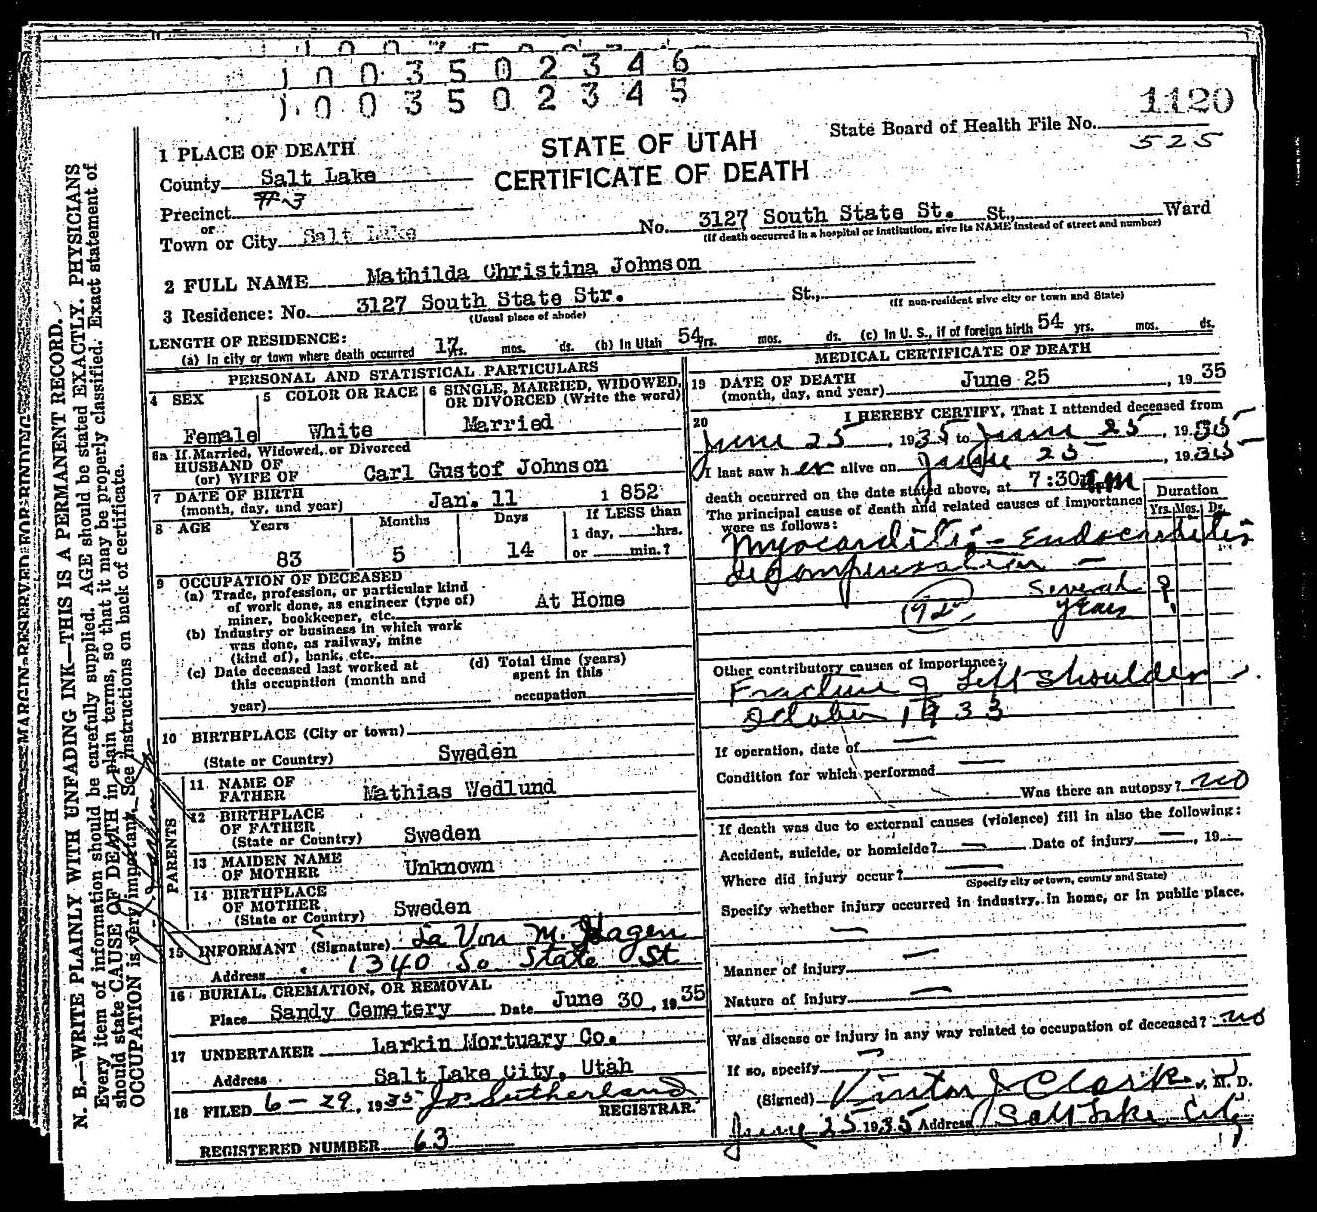 1003502346
1003502345
1120
State Board of Health File No.
525
STATE OF UTAH
CERTIFICATE OF DEATH
1 PLACE OF DEATH
County Salt Lake
Precinct #3
or
Town or City Salt Lake
No. 3127 South State St. St., Ward
(If death occurred in a hospital or institution, give its NAME instead of street and number)
2 FULL NAME Mathilda Christina Johnson
3 Residence: No. 3127 South State Str. St.,
(Usual place of abode)
(If non-resident give city or town and State)
LENGTH OF RESIDENCE:
(a) In city or town where death occurred 17 yrs. mos. ds. (b) In Utah 54 yrs. mos. ds. (c) In U. S., if of foreign birth 54 yrs. mos. ds.
PERSONAL AND STATISTICAL PARTICULARS
4 SEX
Female
5 COLOR OR RACE
White
6 SINGLE, MARRIED, WIDOWED,
OR DIVORCED (Write the word)
Married
6a If Married, Widowed, or Divorced
HUSBAND OF
(or) WIFE OF Carl Gustof Johnson
7 DATE OF BIRTH
(month, day, and year) Jan. 11 1852
8 AGE Years Months Days If LESS than
1 day, hrs.
83 5 14 or min.?
9 OCCUPATION OF DECEASED
(a) Trade, profession, or particular kind
of work done, as engineer (type of)
miner, bookkeeper, etc. At Home
(b) Industry or business in which work
was done, as railway, mine
(kind of), bank, etc.
(c) Date deceased last worked at
this occupation (month and
year)
(d) Total time (years)
spent in this
occupation
10 BIRTHPLACE (City or town)
(State or Country) Sweden
PARENTS
11 NAME OF
FATHER Mathias Wedlund
12 BIRTHPLACE
OF FATHER
(State or Country) Sweden
13 MAIDEN NAME
OF MOTHER Unknown
14 BIRTHPLACE
OF MOTHER
(State or Country) Sweden
15 INFORMANT (Signature) La Von M. Hagen
Address 1340 So State St
16 BURIAL, CREMATION, OR REMOVAL
Place Sandy Cemetery Date June 30, 1935
17 UNDERTAKER Larkin Mortuary Co.
Address Salt Lake City, Utah
18 FILED 6-29, 1935 Jos Sutherland
REGISTRAR.
REGISTERED NUMBER 63
MEDICAL CERTIFICATE OF DEATH
19 DATE OF DEATH
(month, day, and year) June 25, 1935
20 I HEREBY CERTIFY, That I attended deceased from
June 25, 1935 to June 25, 1935
I last saw her alive on June 25, 1935
death occurred on the date stated above, at 7:30
The principal cause of death and related causes of importance
were as follows:
Duration
Yrs. Mos. Ds.
Myocarditis - Endocarditis
decompensation -
Several
years
Other contributory causes of importance:
Fracture of Left Shoulder
October 1933
If operation, date of —
Condition for which performed —
Was there an autopsy? no
If death was due to external causes (violence) fill in also the following:
Accident, suicide, or homicide? — Date of injury —, 19
Where did injury occur? —
(Specify city or town, county and State)
Specify whether injury occurred in industry, in home, or in public place.
—
Manner of injury —
Nature of injury —
Was disease or injury in any way related to occupation of deceased? no
If so, specify —
(Signed) Vinton J Clark, M. D.
June 25 1935 Address Salt Lake City
MARGIN RESERVED FOR BINDING
N. B.—WRITE PLAINLY WITH UNFADING INK—THIS IS A PERMANENT RECORD.
Every item of information should be carefully supplied. AGE should be stated EXACTLY. PHYSICIANS
should state CAUSE OF DEATH in plain terms, so that it may be properly classified. Exact statement of
OCCUPATION is very important. See instructions on back of certificate.